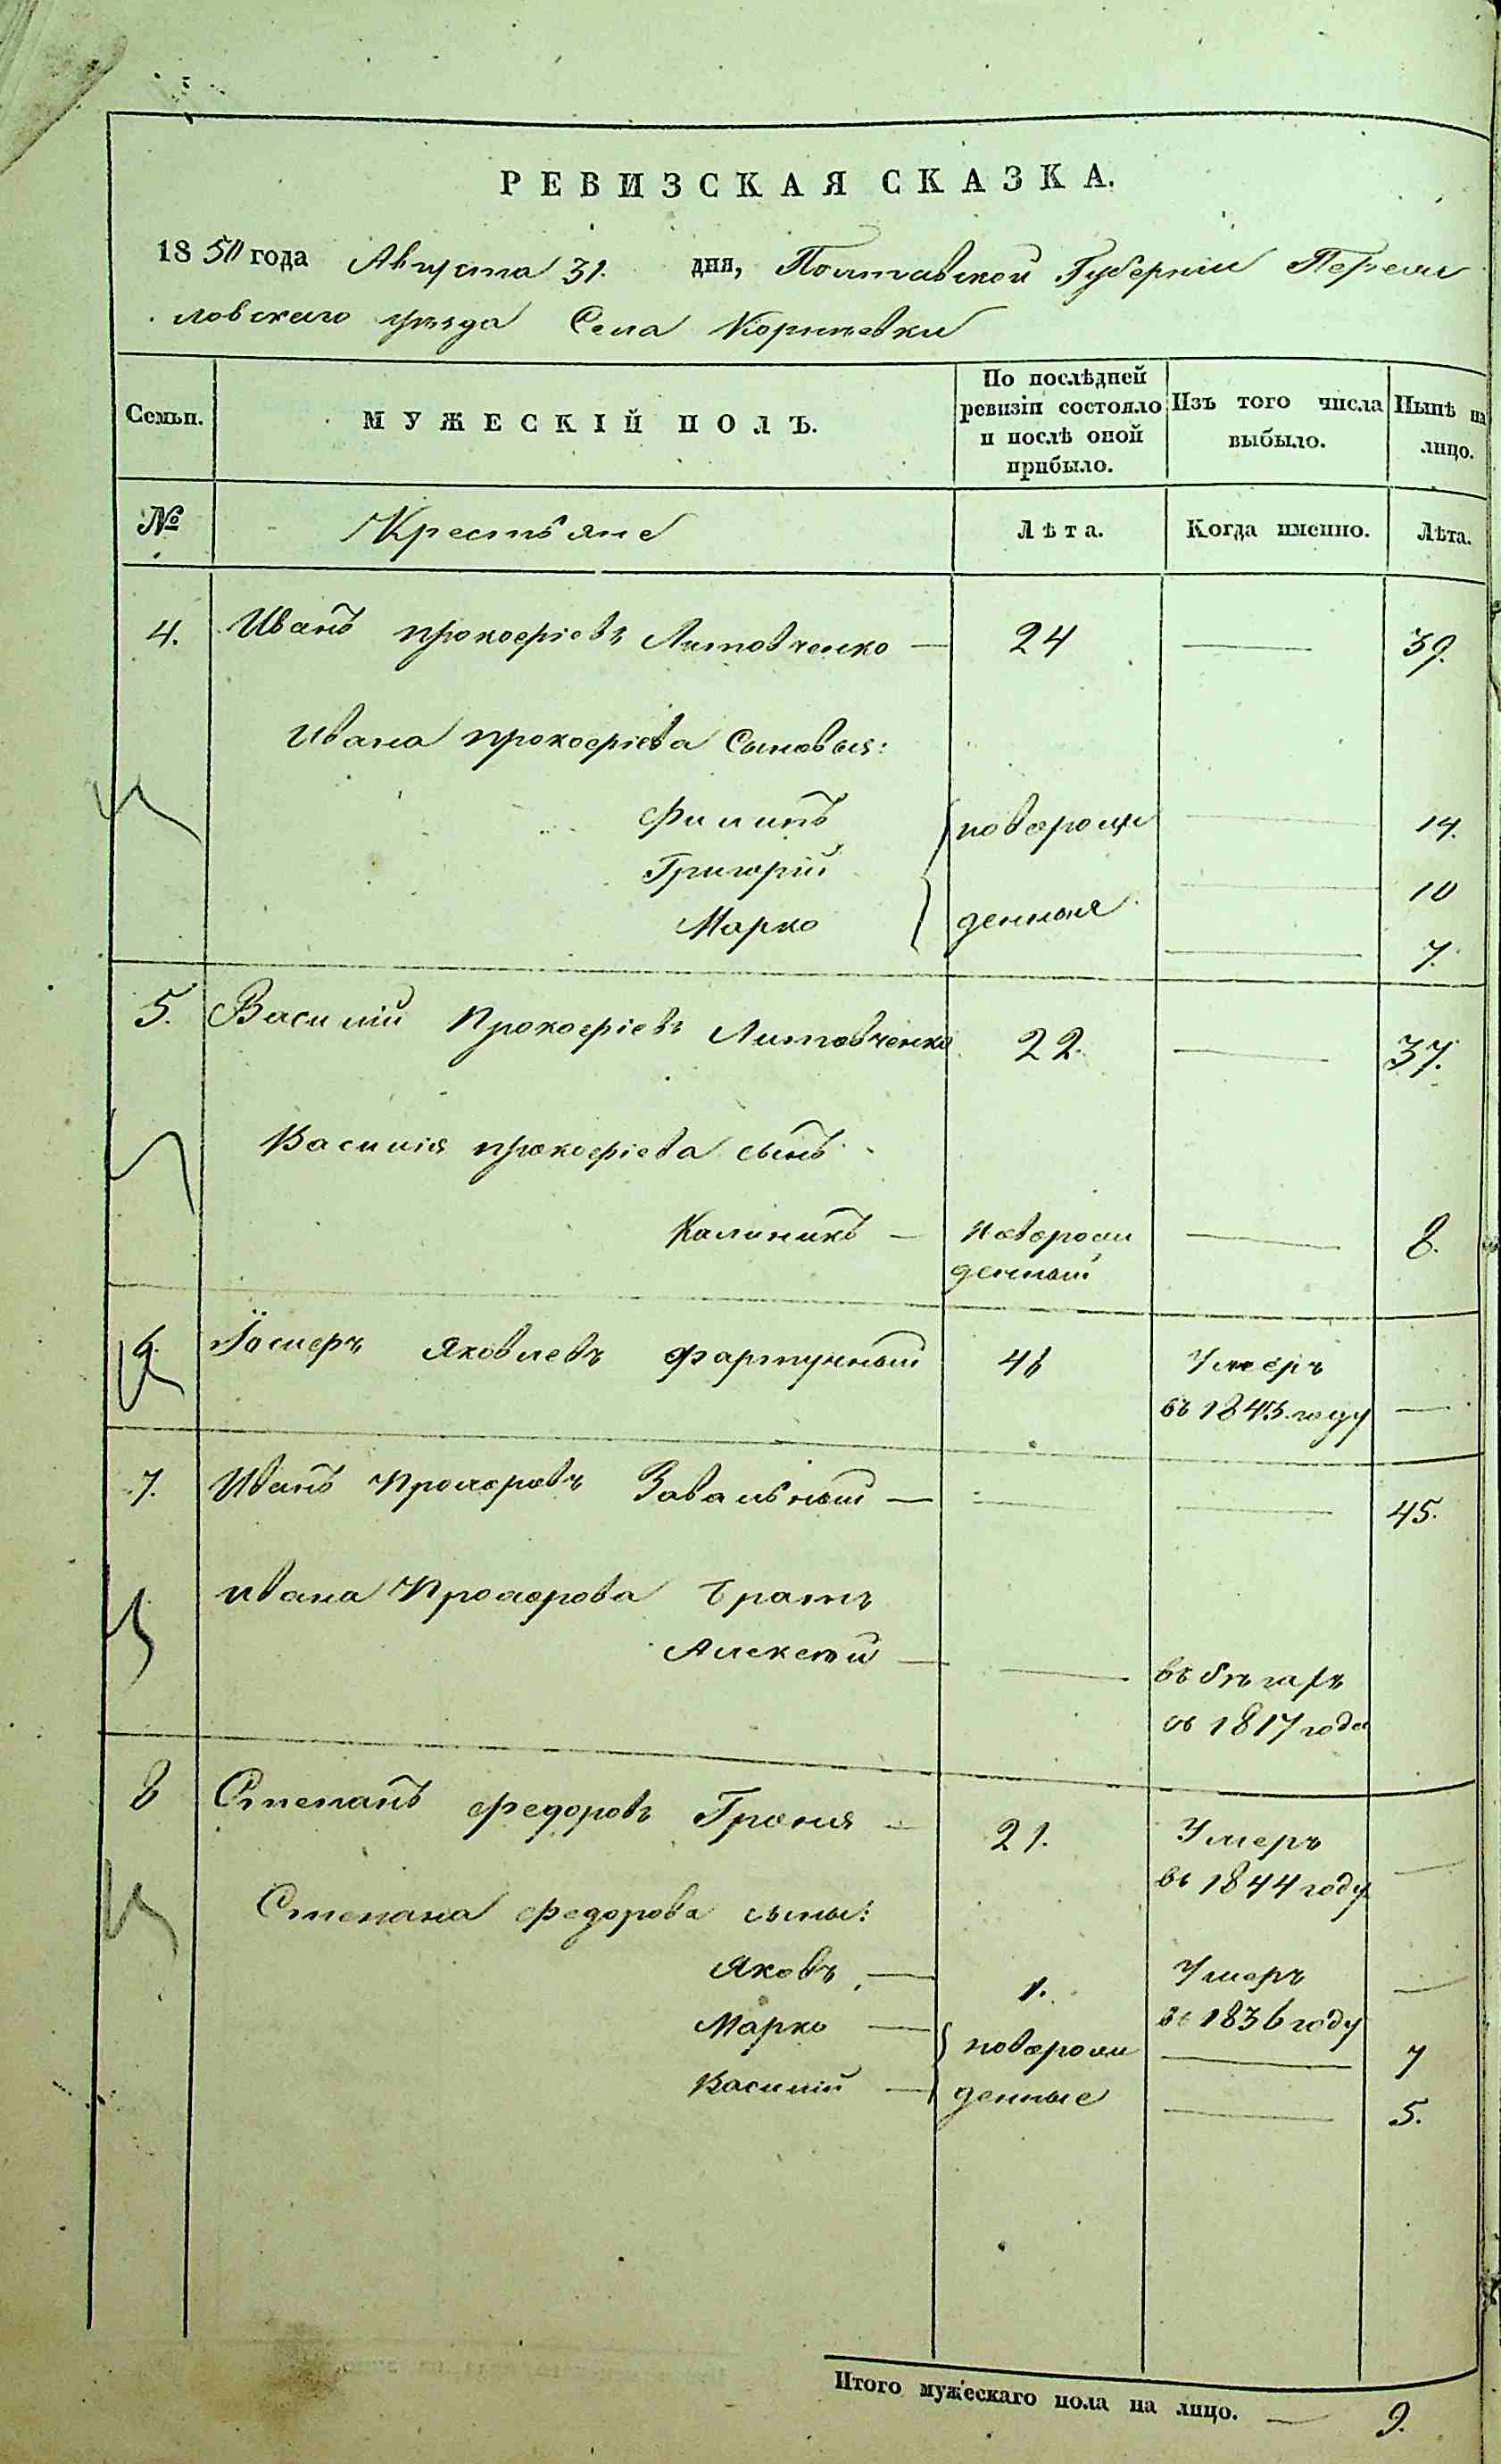 РЕВИЗСКАЯ СКАЗКА.
1850 года Августа 31. дня, Полтавской Губернии Переяс
ловского уѣзда Села Корнѣевки
Семьи.
МУЖЕСКІЙ ПОЛЪ.
По послѣдней ревизіи состояло и послѣ оной прибыло.
Изъ того числа выбыло.
Нынѣ на лицо.
№ Крестьяне Лѣта. Когда именно. Лѣта.
4. Иванъ прокофіевъ Литовченко — 24 — 39.
Ивана прокофіева Сыновья:
Филипъ новорож — 14.
Григорій — 10
Марко денныя — 7.
5. Василій Прокофіевъ Литовченко 22. — 37.
Василія прокофіева сынъ
Калиникъ — новорож — 8.
денный
6. Яковлевъ Фартушный 46 Умеръ
въ 1843 году —
7. Иванъ Прохоровъ Завальный — — — 45.
Ивана Прохорова братъ
Алексѣй — — въ бѣгахъ
съ 1817 года
8 Степанъ федоровъ Гроня — 21. Умеръ
въ 1844 году —
Степана федорова сыны:
Яковъ — 1. Умеръ —
въ 1836 году
Марко — новорож — 7
Василій — денные — 5.
Итого мужескаго пола на лицо. — 9.